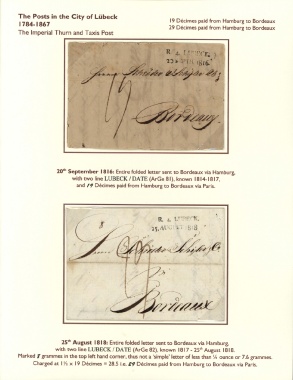 The Posts in the City of Lübeck
1784-1867
The Imperial Thurn and Taxis Post
19 Décimes paid from Hamburg to Bordeaux
29 Décimes paid from Hamburg to Bordeaux
R. 4. LUBECK,
19
Bordeaux
20th September 1816: Entire folded letter sent to Bordeaux via Hamburg,
with two line LUBECK / DATE (ArGe 81), known 1814-1817,
and 19 Décimes paid from Hamburg to Bordeaux via Paris.
8
R. 4. LUBECK,
25. AUGUST 1818
Bordeaux
25th August 1818: Entire folded letter sent to Bordeaux via Hamburg,
with two line LUBECK / DATE (ArGe 82), known 1817 - 25th August 1818.
Marked 8 grammes in the top left hand corner, thus not a 'simple' letter of less than ¼ ounce or 7.6 grammes.
Charged at 1½ x 19 Décimes = 28.5 i.e. 29 Décimes paid from Hamburg to Bordeaux via Paris.